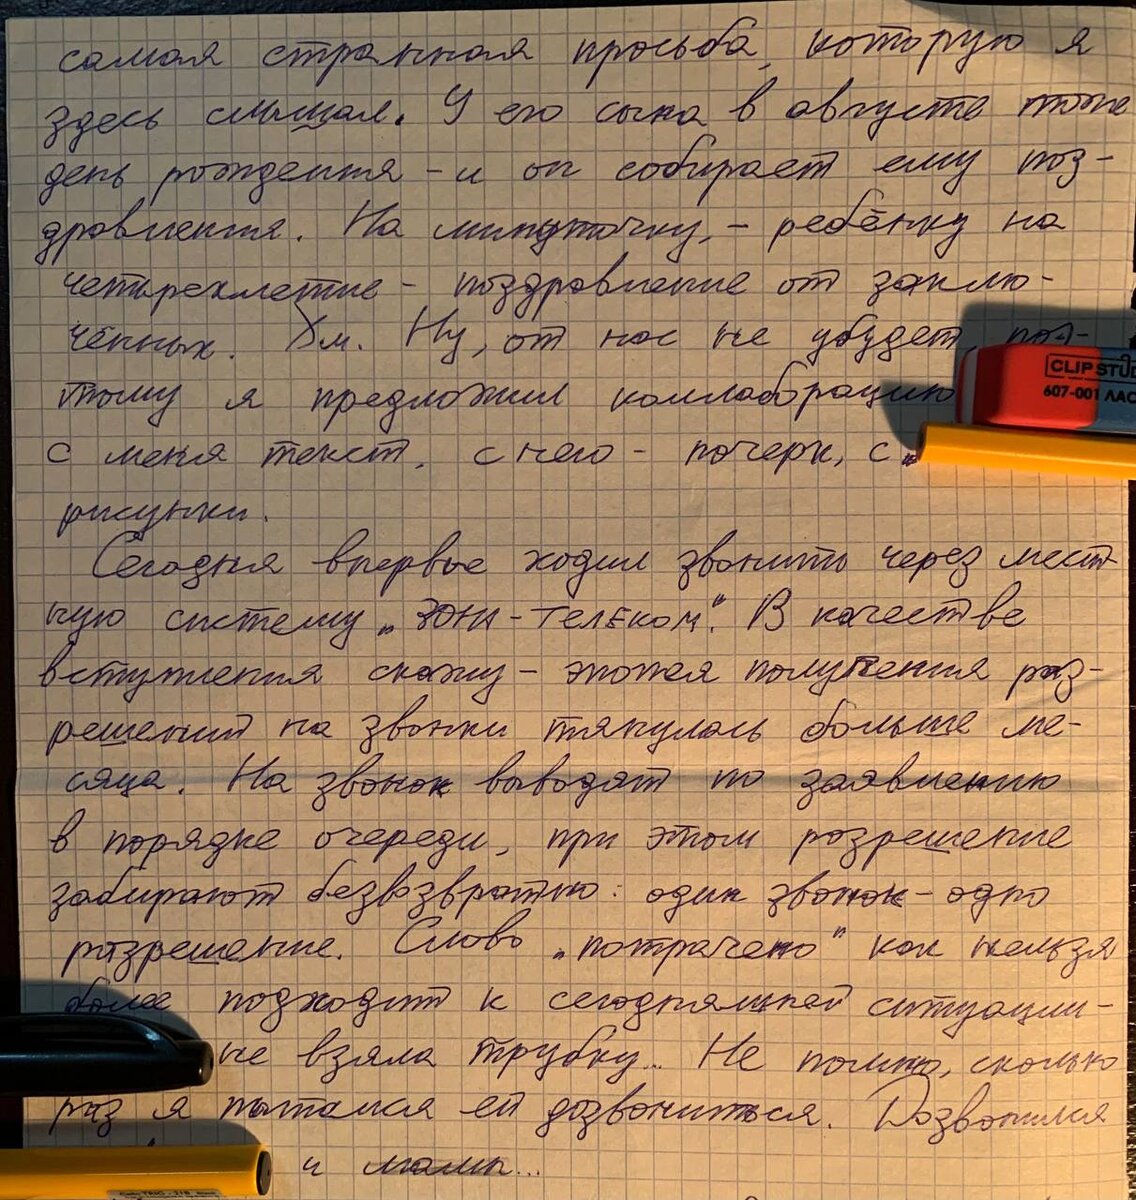 самая странная просьба, которую я
здесь слышал. У его сына в августе тоже
день рождения – и он собирает ему поз-
дравления. На минуточку, – ребёнку на
четырехлетие – поздравление от заклю-
чённых. Хм. Ну, от нас не убудет, поэ-
тому я предложил коллаборацию
с меня текст, с него – почерк, с
рисунки.
Сегодня впервые ходил звонить через мест-
ную систему „ЗОНА-ТЕЛЕКОМ". В качестве
вступления скажу – эпопея получения раз-
решений на звонки тянулась больше ме-
сяца. На звонок выводят по заявлению
в порядке очереди, при этом разрешение
забирают безвозвратно: один звонок – одно
разрешение. Слово „потрачено" как нельзя
более подходит к сегодняшней ситуации –
не взяла трубку... Не помню, сколько
раз я пытался ей дозвониться. Дозвонился
и мамы...
CLIP STUD
607-001 ЛАС